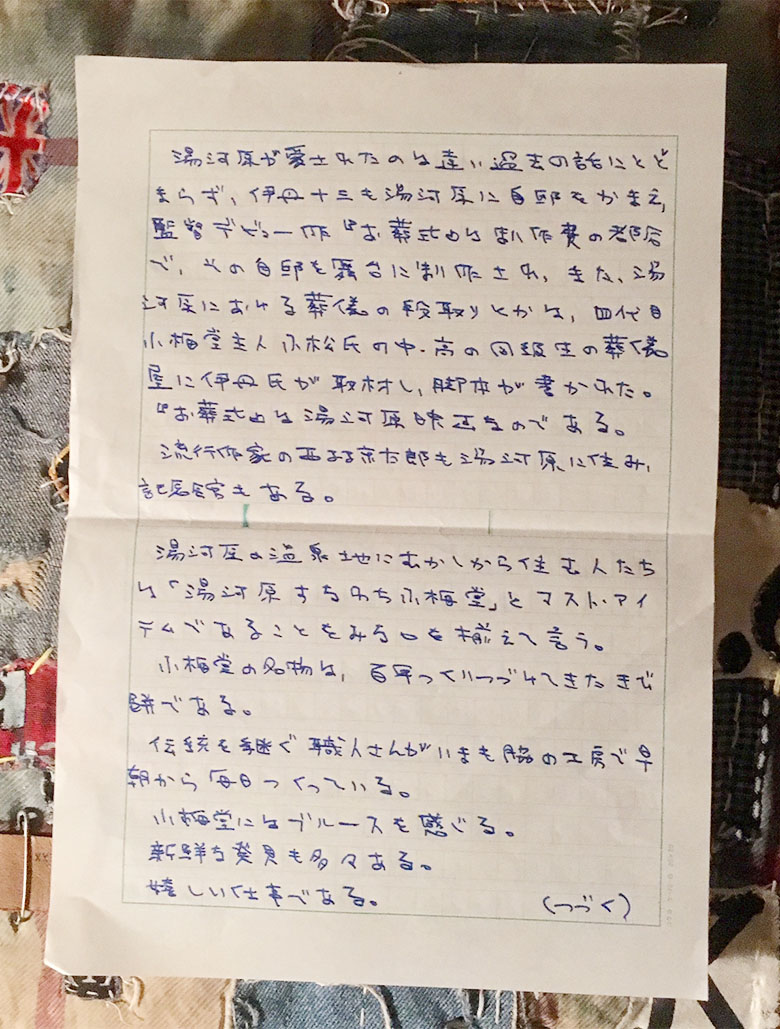 湯河原が愛されたのは遠い過去の話にとど
まらず、伊丹十三も湯河原に自邸をかまえ、
監督デビュー作『お葬式』は制作費の都合
で、その自邸を舞台に制作され、また、湯
河原における葬儀の段取りとかは、四代目
小梅堂主人小松氏の中・高の同級生の葬儀
屋に伊丹氏が取材し、脚本が書かれた。
『お葬式』は湯河原映画なのである。
流行作家の西村京太郎も湯河原に住み、
記念館もある。
湯河原の温泉地にむかしから住む人たち
は「湯河原すなわち小梅堂」とマスト・アイ
テムであることをみな口を揃えて言う。
小梅堂の名物は、百年つくりつづけてきたきび
餅である。
伝統を継ぐ職人さんがいまも脇の工房で早
朝から毎日つくっている。
小梅堂にはブルースを感じる。
新鮮な発見も多々ある。
嬉しい仕事である。
(つづく)